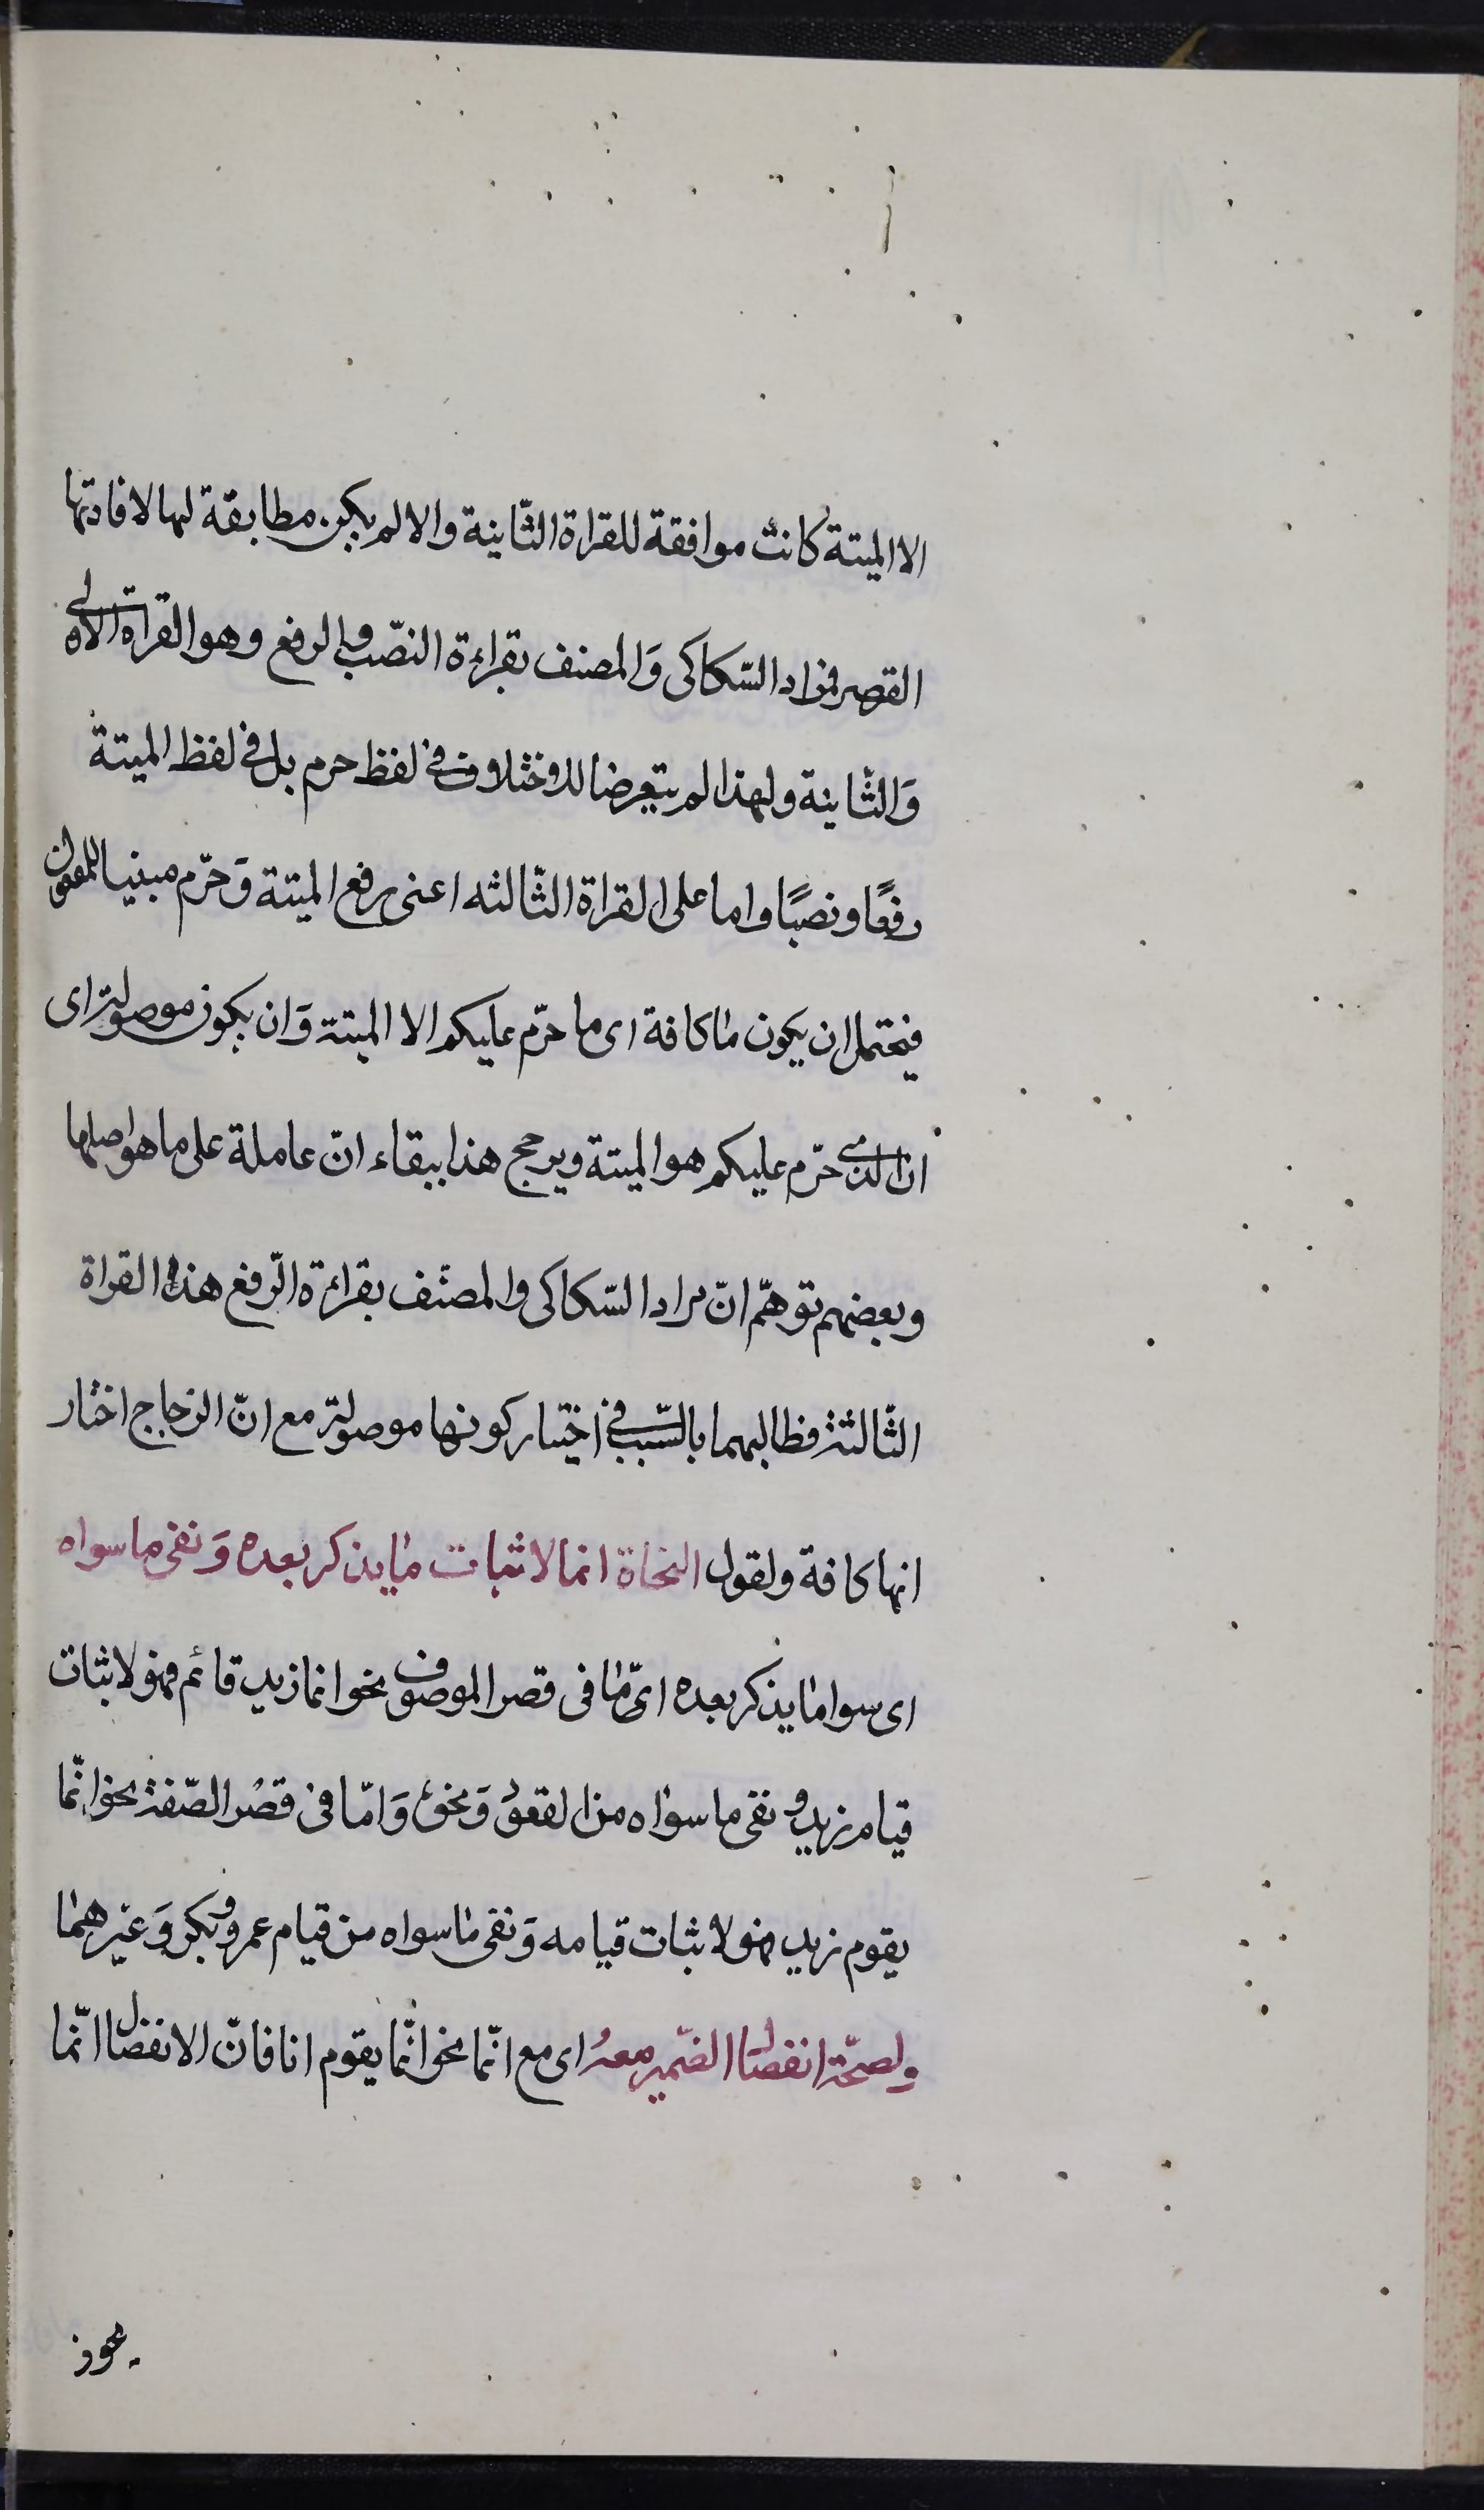 الا الميتة كانت موافقة للقراة الثّانية والا لم يكن مطابقة لها لافادتها
القصر فمراد السّكاكى وَالمصنف بقراءة النصّب والرفع وهو القراة الاولى
وَالثّانية ولهذا لم يتعرضا للاختلاف فى لفظ حرم بل فى لفظ الميتة
رفعًا ونصبًا واما على القراة الثّالثه اعنى رفع الميتة وَحرّم مبنيا للمفعول
فيحتمل ان يكون ما كافة اى ما حرّم عليكم الا الميتة وَان يكون موصولة اى
ان الذى حرّم عليكم هو الميتة ويرجح هذا ببقاء انّ عاملة على ما هو اصلها
وبعضهم توهّم انّ مراد السّكاكى والمصنّف بقراءة الرّفع هذه القراة
الثّالثة فطالبهما بالسّبب فى اختيار كونها موصولة مع انّ الزجاج اختار
انها كافة ولقول النحاة انما لاثبات ما يذكر بعده وَنفى ما سواه
اى سوا ما يذكر بعده امّا فى قصر الموصوف نحو انما زيد قائم فهو لاثبات
قيام زيد ونفى ما سواه من القعود وَنحوه وَامّا فى قصْر الصّفة نحو انّما
يقوم زيد فهو لاثبات قيامه وَنفى ما سواه من قيام عمرو وبكر وَغيرهما
ولصحّة انفصال الضّمير معهُ اى مع انّما نحو انّما يقوم انا فانّ الانفصال انّما
يجوز